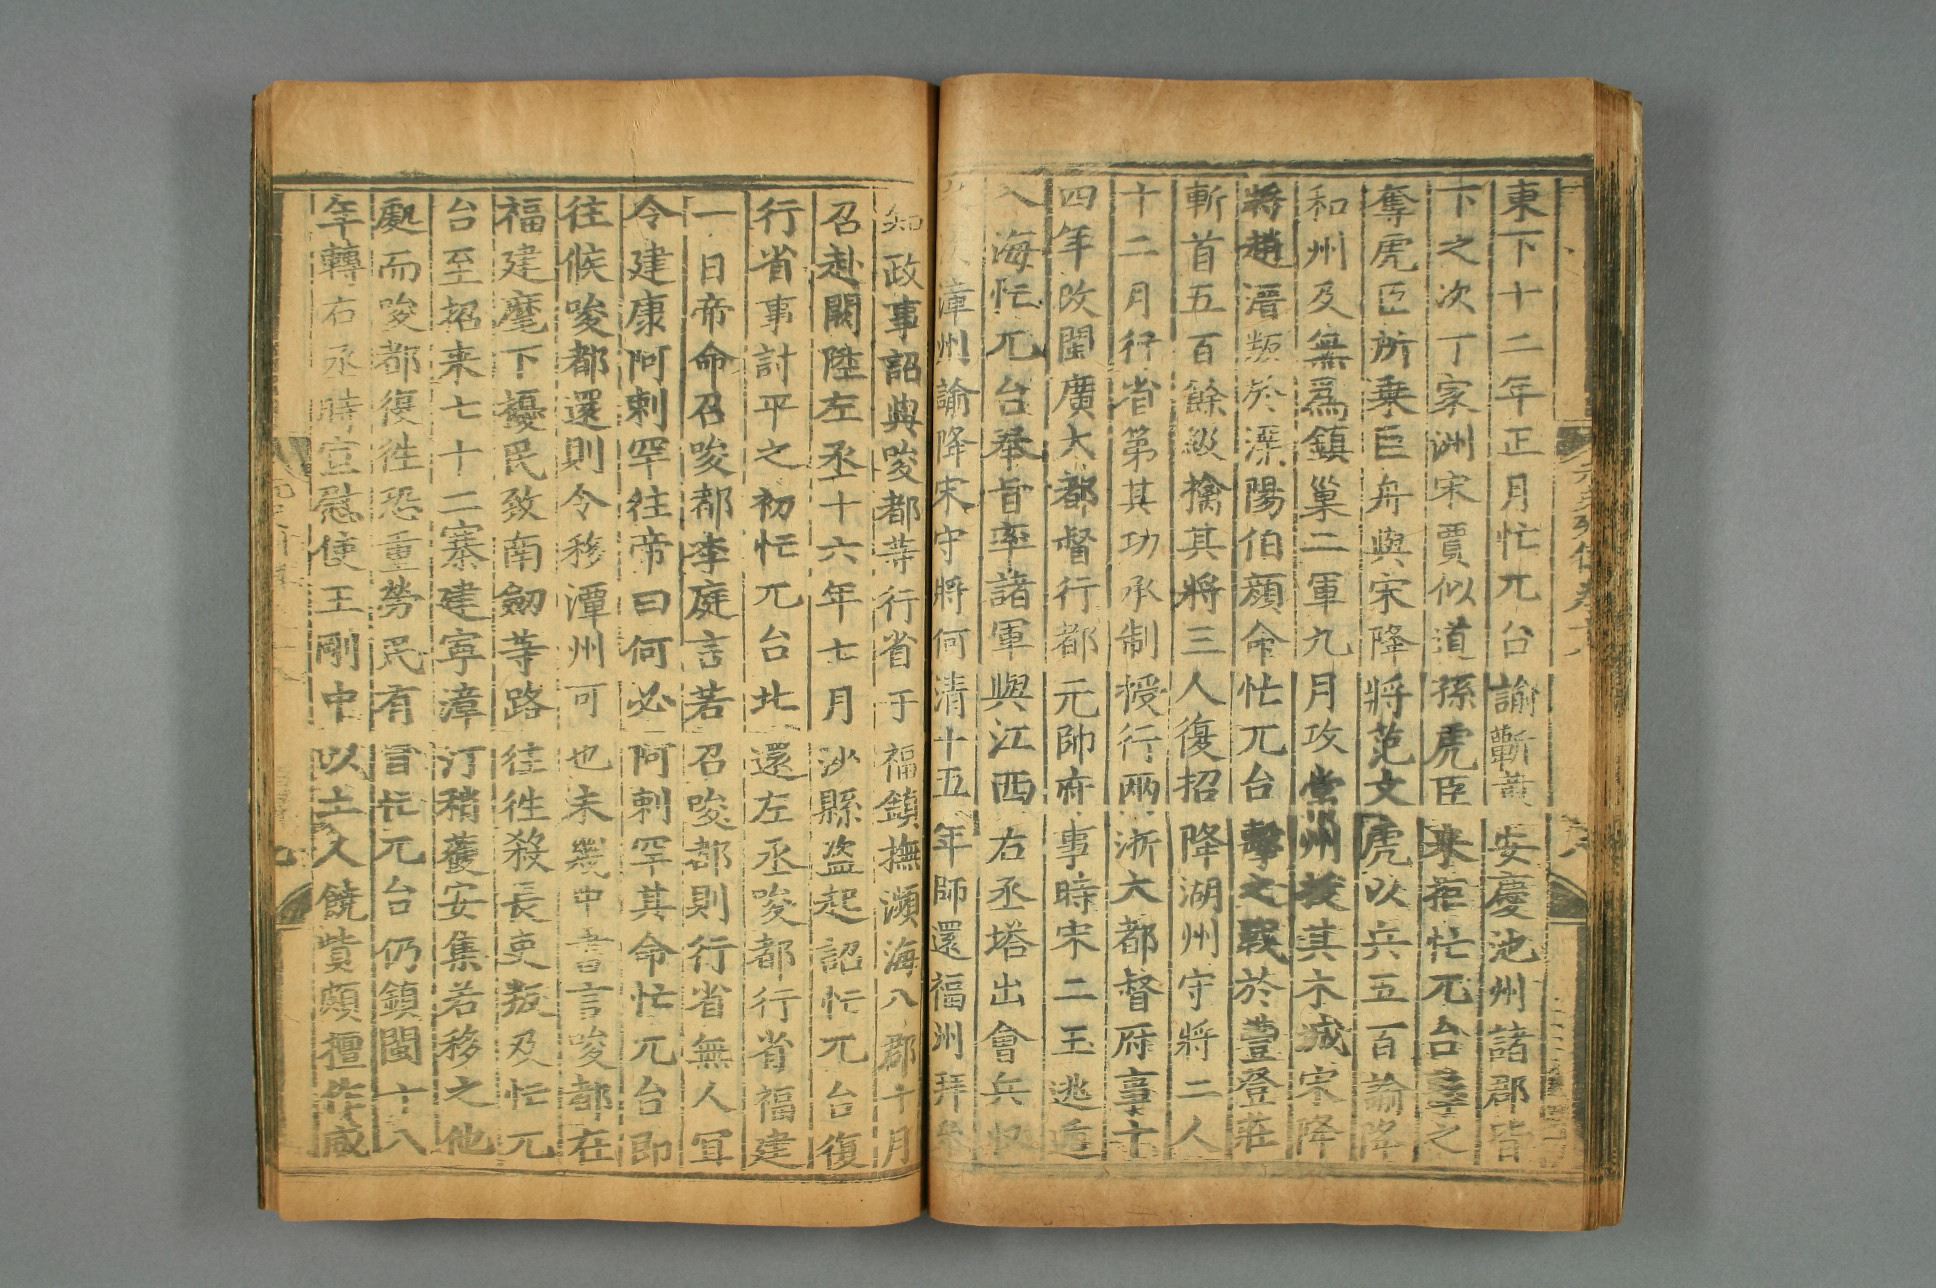 東下十二年正月忙兀台諭蘄黃安慶池州諸郡皆
下之次丁家洲宋賈似道孫虎臣來拒忙兀台擊之
奪虎臣所乘巨舟與宋降將范文虎以兵五百諭降
和州及無爲鎮巢二軍九月攻常州拔其木城宋降
將趙溍叛於溧陽伯顔命忙兀台擊之戰於豊登莊
斬首五百餘級擒其將三人復招降湖州守將二人
十二月行省第其功承制授行兩浙大都督府事十
四年改閩廣大都督行都元帥府事時宋二王逃遁
入海忙兀台奉旨率諸軍與江西右丞塔出會兵収
漳州諭降宋守將何清十五年師還福州拜叅
知政事詔與唆都等行省于福鎮撫瀕海八郡十月
召赴闕陞左丞十六年七月沙縣盜起詔忙兀台復
行省事討平之初忙兀台北還左丞唆都行省福建
一日帝命召唆都李庭言若召唆都則行省無人冝
令建康阿剌罕往帝曰何必阿剌罕其命忙兀台即
往候唆都還則令移潭州可也未幾中書言唆都在
福建麾下擾民致南劒等路往徃殺長吏叛及忙兀
台至招来七十二寨建寧漳汀稍蘉安集若移之他
處而唆都復徃恐重勞民有旨忙兀台仍鎮閩十八
年轉右丞時宣慰使王剛中以土人饒貲頗擅作威